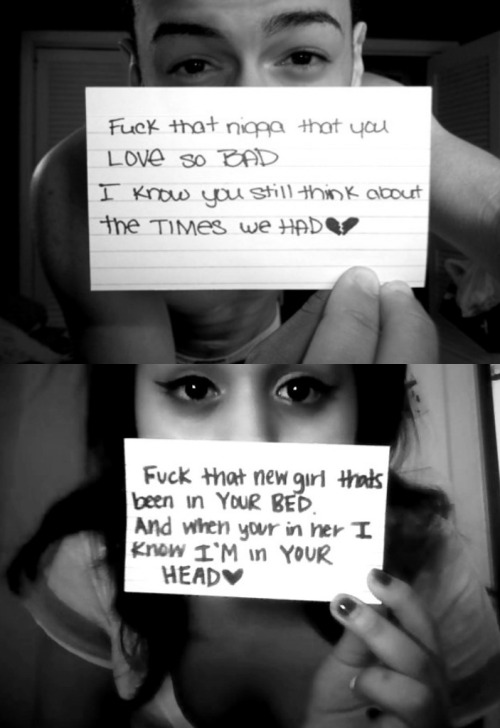 Fuck that nigga that you
LOVE so BAD
I know you still think about
the TIMES we HAD
Fuck that new girl thats
been in YOUR BED.
And when your in her I
know I'M in YOUR
HEAD